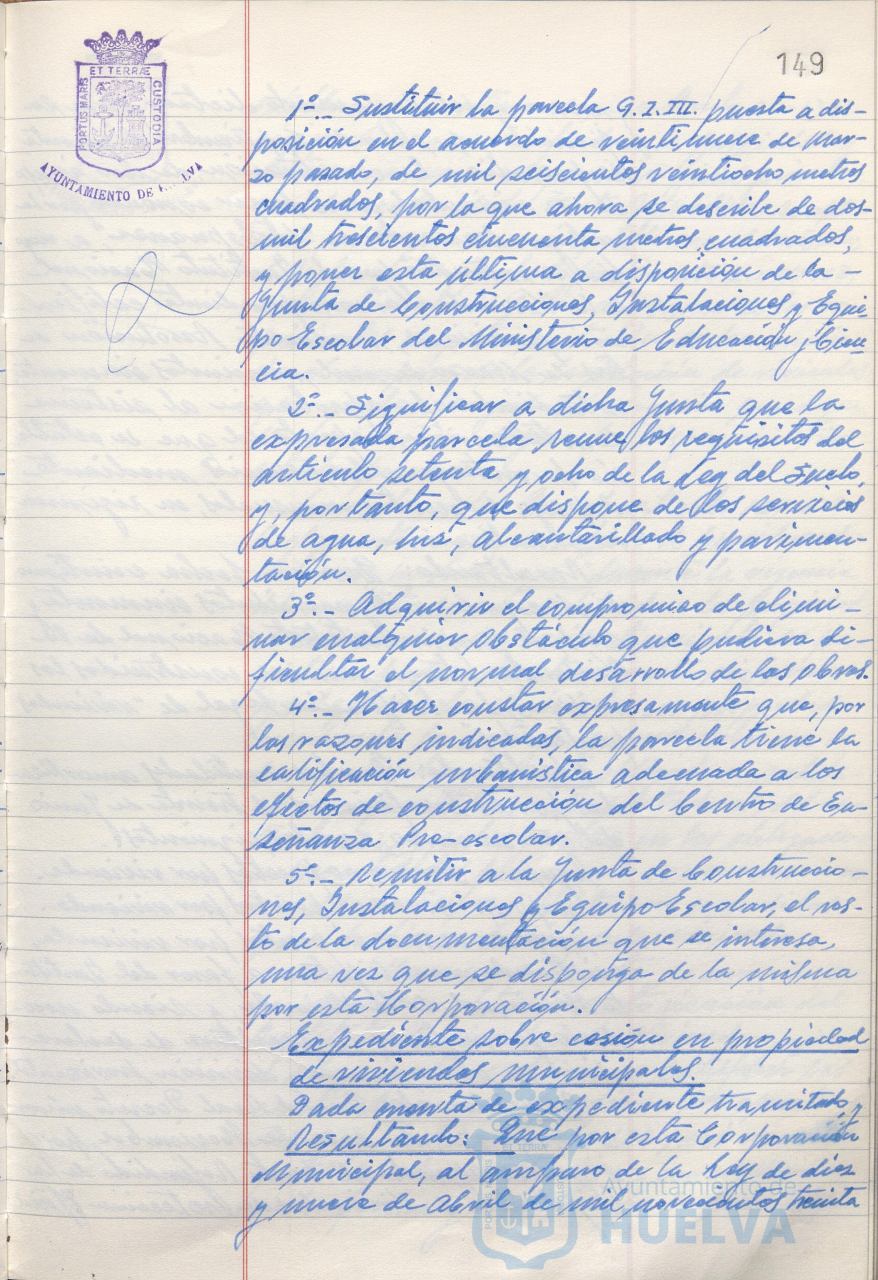 149
PORTUS MARIS ET TERRÆ CUSTODIA
AYUNTAMIENTO DE H ELVA
1º.- Sustituir la parcela G.I.III. puesta a dis-
posición en el acuerdo de veintinueve de mar-
zo pasado, de mil seiscientos veintiocho metros
cuadrados, por la que ahora se describe de dos-
mil trescientos cincuenta metros cuadrados,
y poner esta última a disposición de la -
Junta de Construcciones, Instalaciones y Equi-
po Escolar del Ministerio de Educación y Cien-
cia.
2º.- Significar a dicha Junta que la
expresada parcela reune los requisitos del
artículo setenta y ocho de la Ley del Suelo,
y, por tanto, que dispone de los servicios
de agua, luz, alcantarillado y pavimen-
tación.
3º.- Adquirir el compromiso de elimi-
nar cualquier obstáculo que pudiera di-
ficultar el normal desarrollo de las obras.
4º.- Hacer constar expresamente que, por
las razones indicadas, la parcela tiene la
calificación urbanística adecuada a los
efectos de construcción del Centro de En-
señanza Pre-escolar.
5º.- Remitir a la Junta de Construccio-
nes, Instalaciones y Equipo Escolar, el res-
to de la documentación que se interesa,
una vez que se disponga de la misma
por esta Corporación.
Expediente sobre cesión en propiedad
de viviendas municipales.
Dada cuenta de expediente tramitado y
Resultando: Que por esta Corporación
Municipal, al amparo de la Ley de diez
y nueve de Abril de mil novecientos treinta
Ayuntamiento de
HUELVA